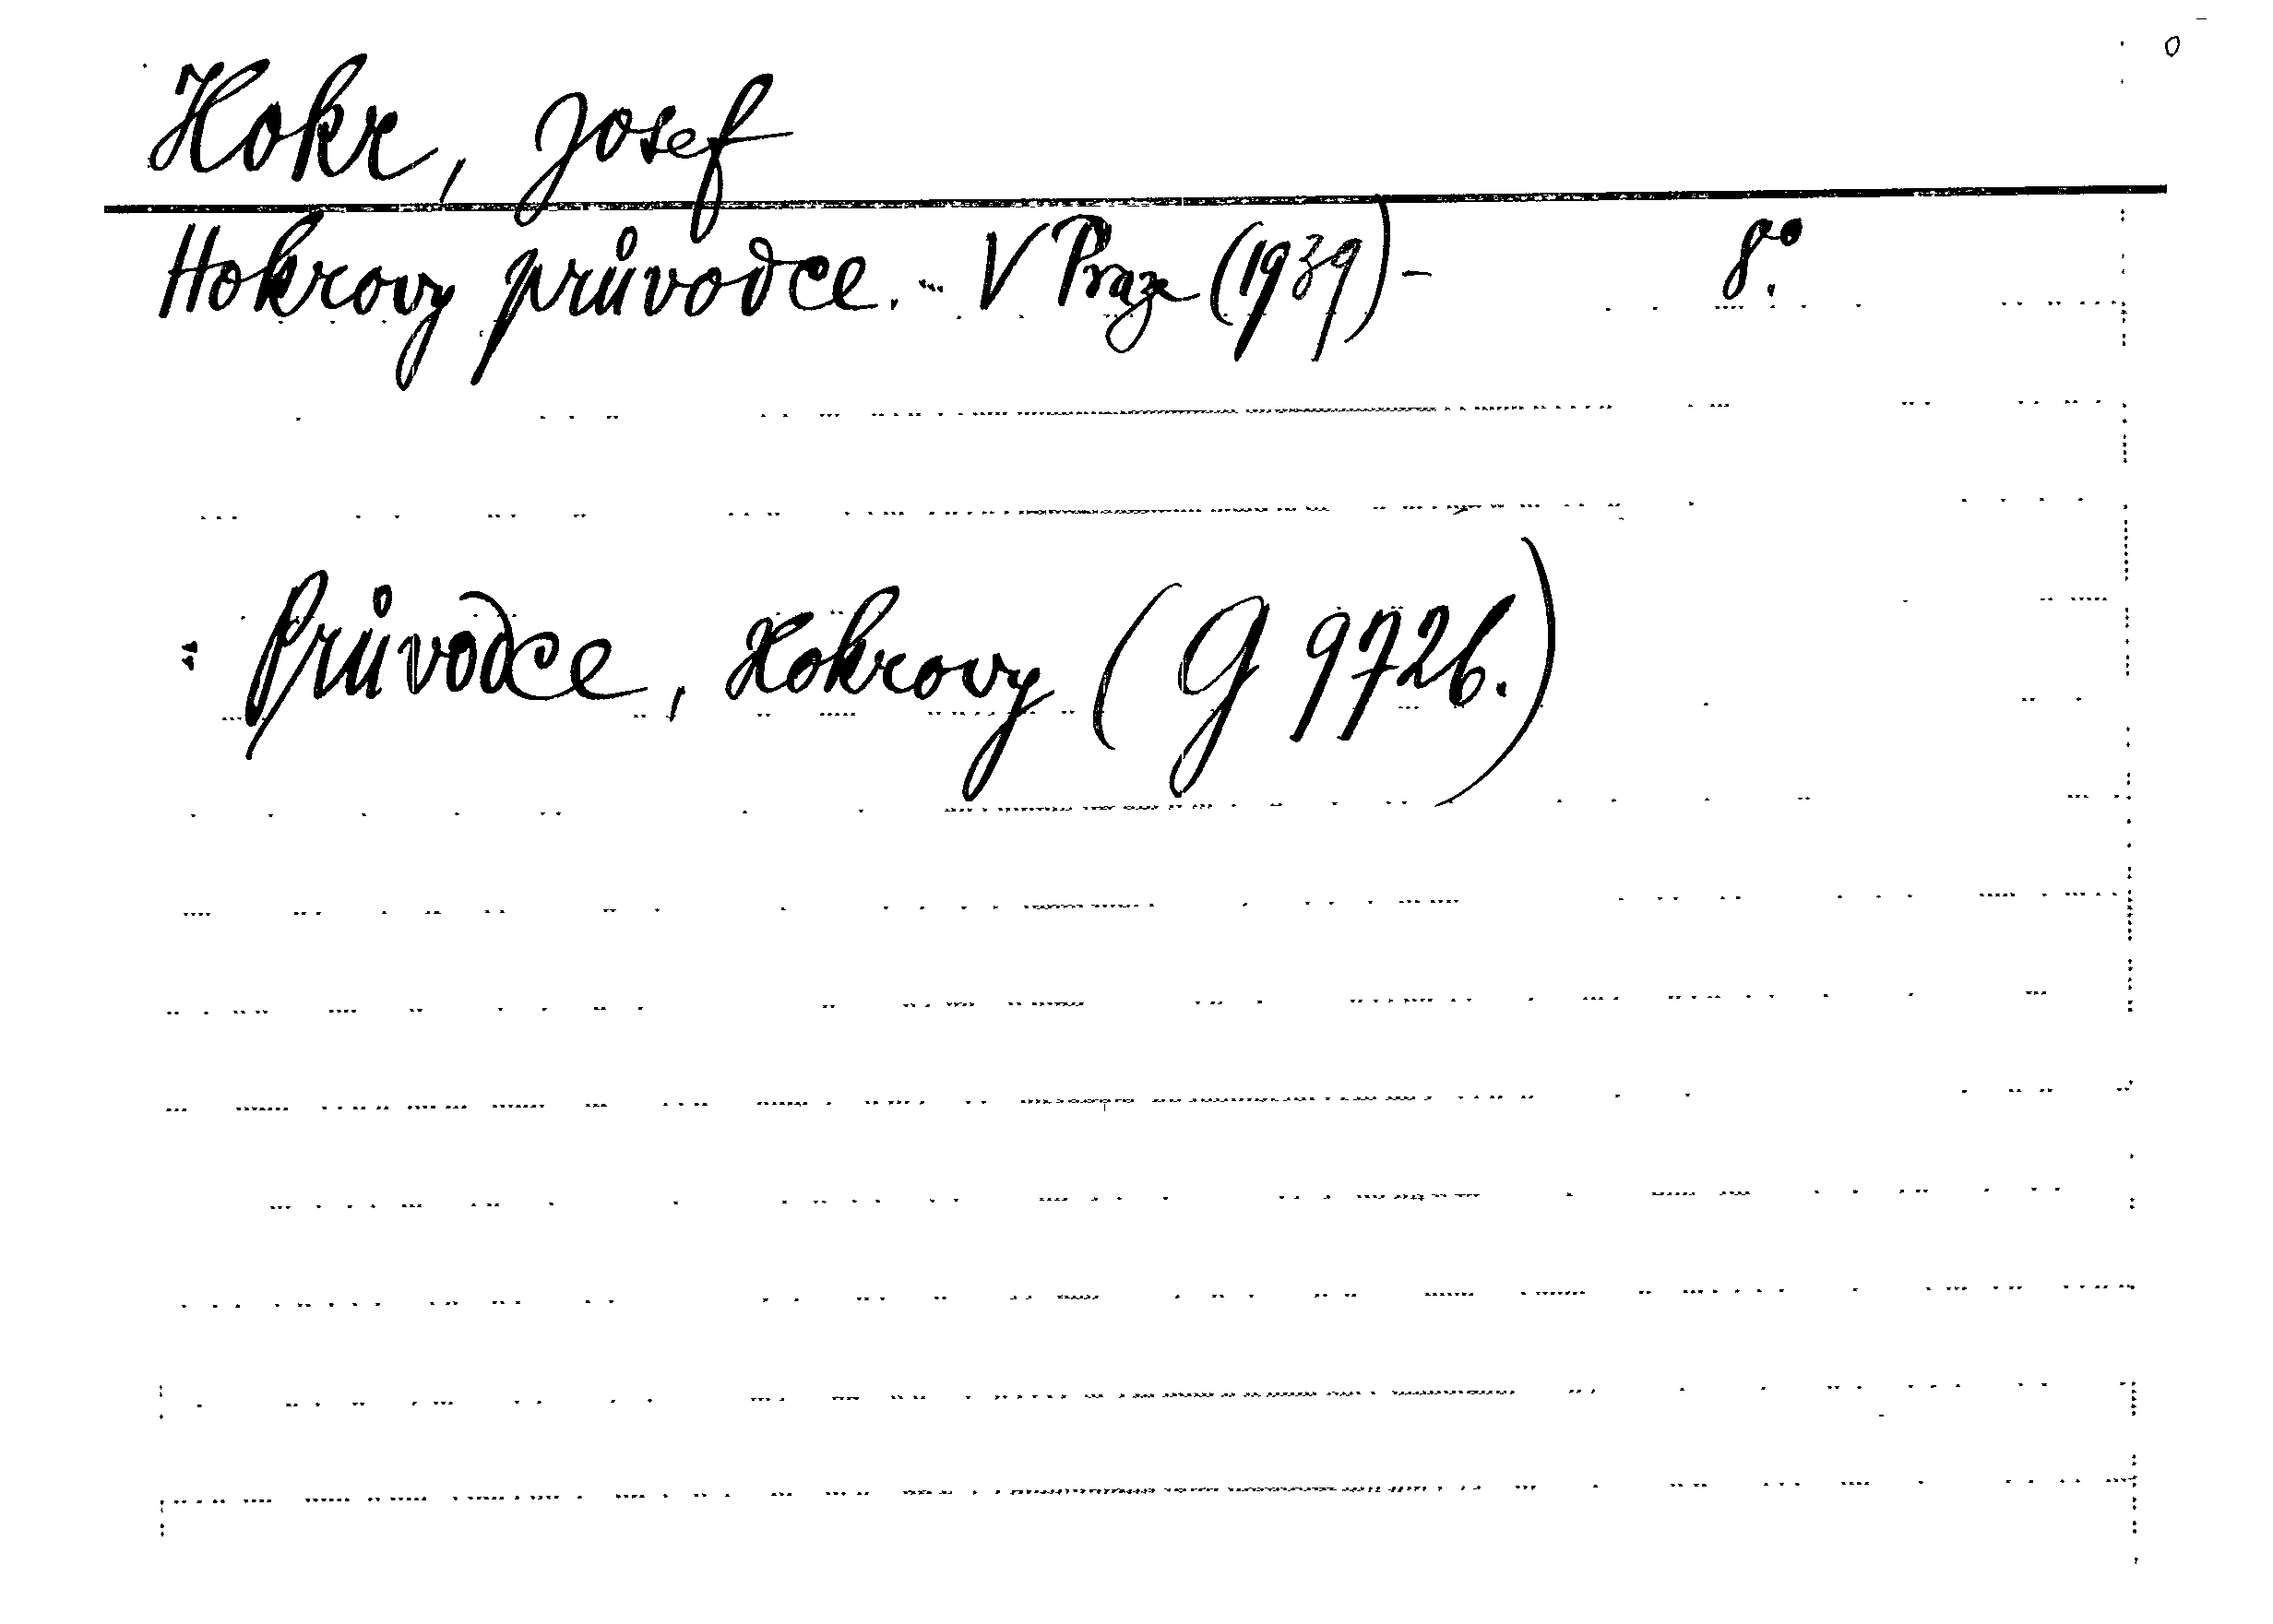 Hokr, Josef
Hokrovy průvodce. - V Praze (1939) - 8º.
: Průvodce, Hokrovy (G 9726.)